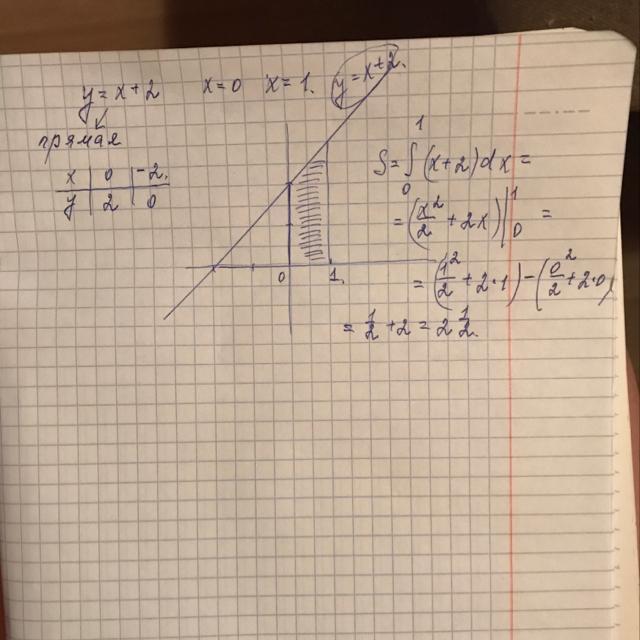 y = x + 2   x = 0   x = 1.   y = x + 2.
прямая
x | 0 | -2.
y | 2 | 0
0   1.
S = ∫₀¹ (x + 2) dx =
= (x²/2 + 2x) |₀¹ =
= (1²/2 + 2·1) - (0²/2 + 2·0)
= 1/2 + 2 = 2 1/2.